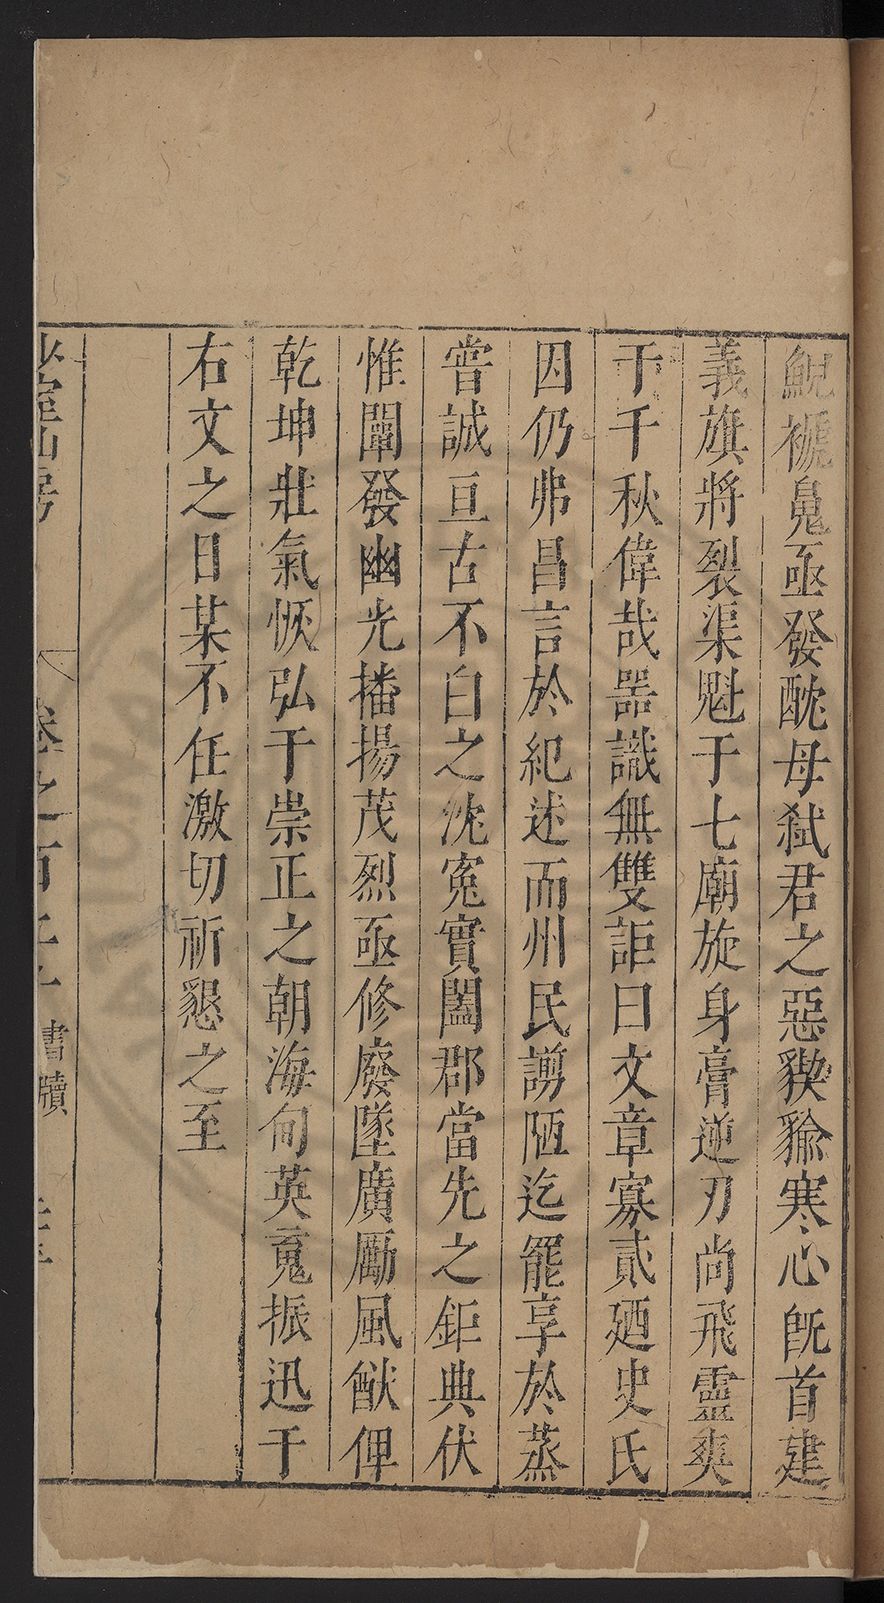 鯢褫鬼亟發酖母弑君之惡貏貐寒心旣首建
義旗將裂渠魁于七廟旋身膏逆刃尚飛靈爽
于千秋偉哉器識無雙詎曰文章寡貳廼史氏
因仍弗昌言於紀述而州民謭陋迄罷享於蒸
嘗誠亘古不白之沈寃實闔郡當先之鉅典伏
惟闡發幽光播揚茂烈亟修廢墜廣勵風猷俾
乾坤壯氣恢弘于崇正之朝海甸英䰟振迅于
右文之日某不任激切祈懇之至
少室山房 卷之百 書牘